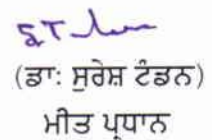 (ਡਾ: ਸੁਰੇਸ਼ ਟੰਡਨ)
ਮੀਤ ਪ੍ਰਧਾਨ